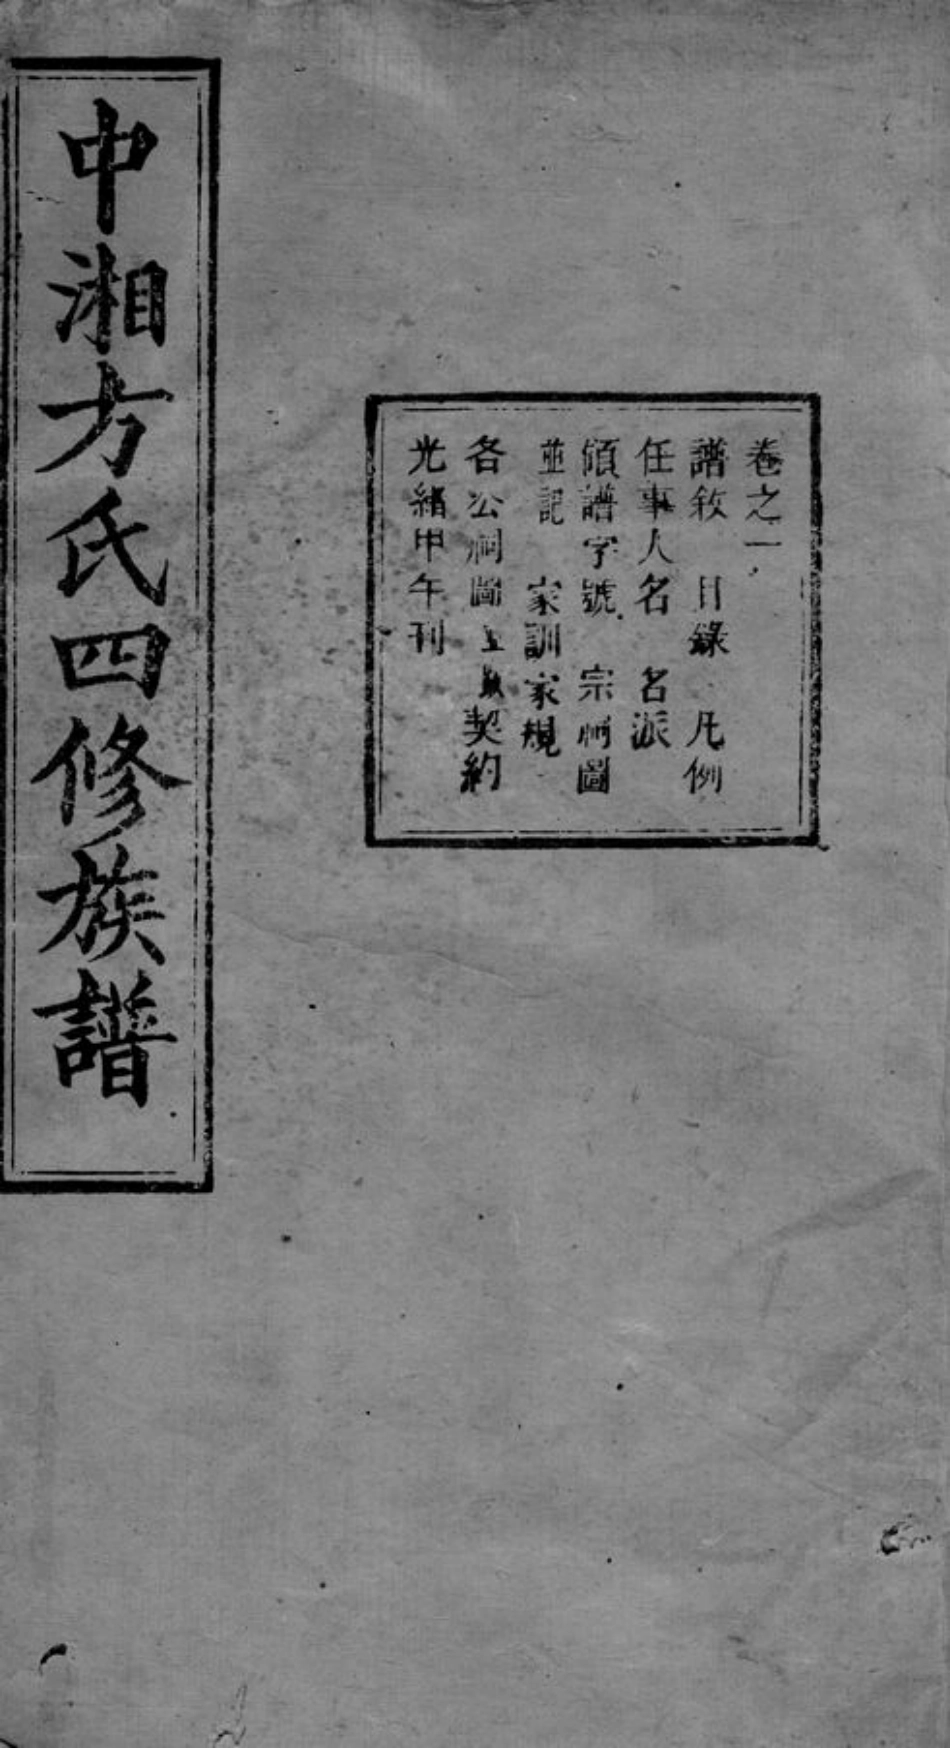 卷之一
譜敘 目錄 凡例
任事人名 名派
領譜字號 宗祠圖
並記 家訓家規
各公祠圖 契約
光緒甲午刊
中湘方氏四修族譜